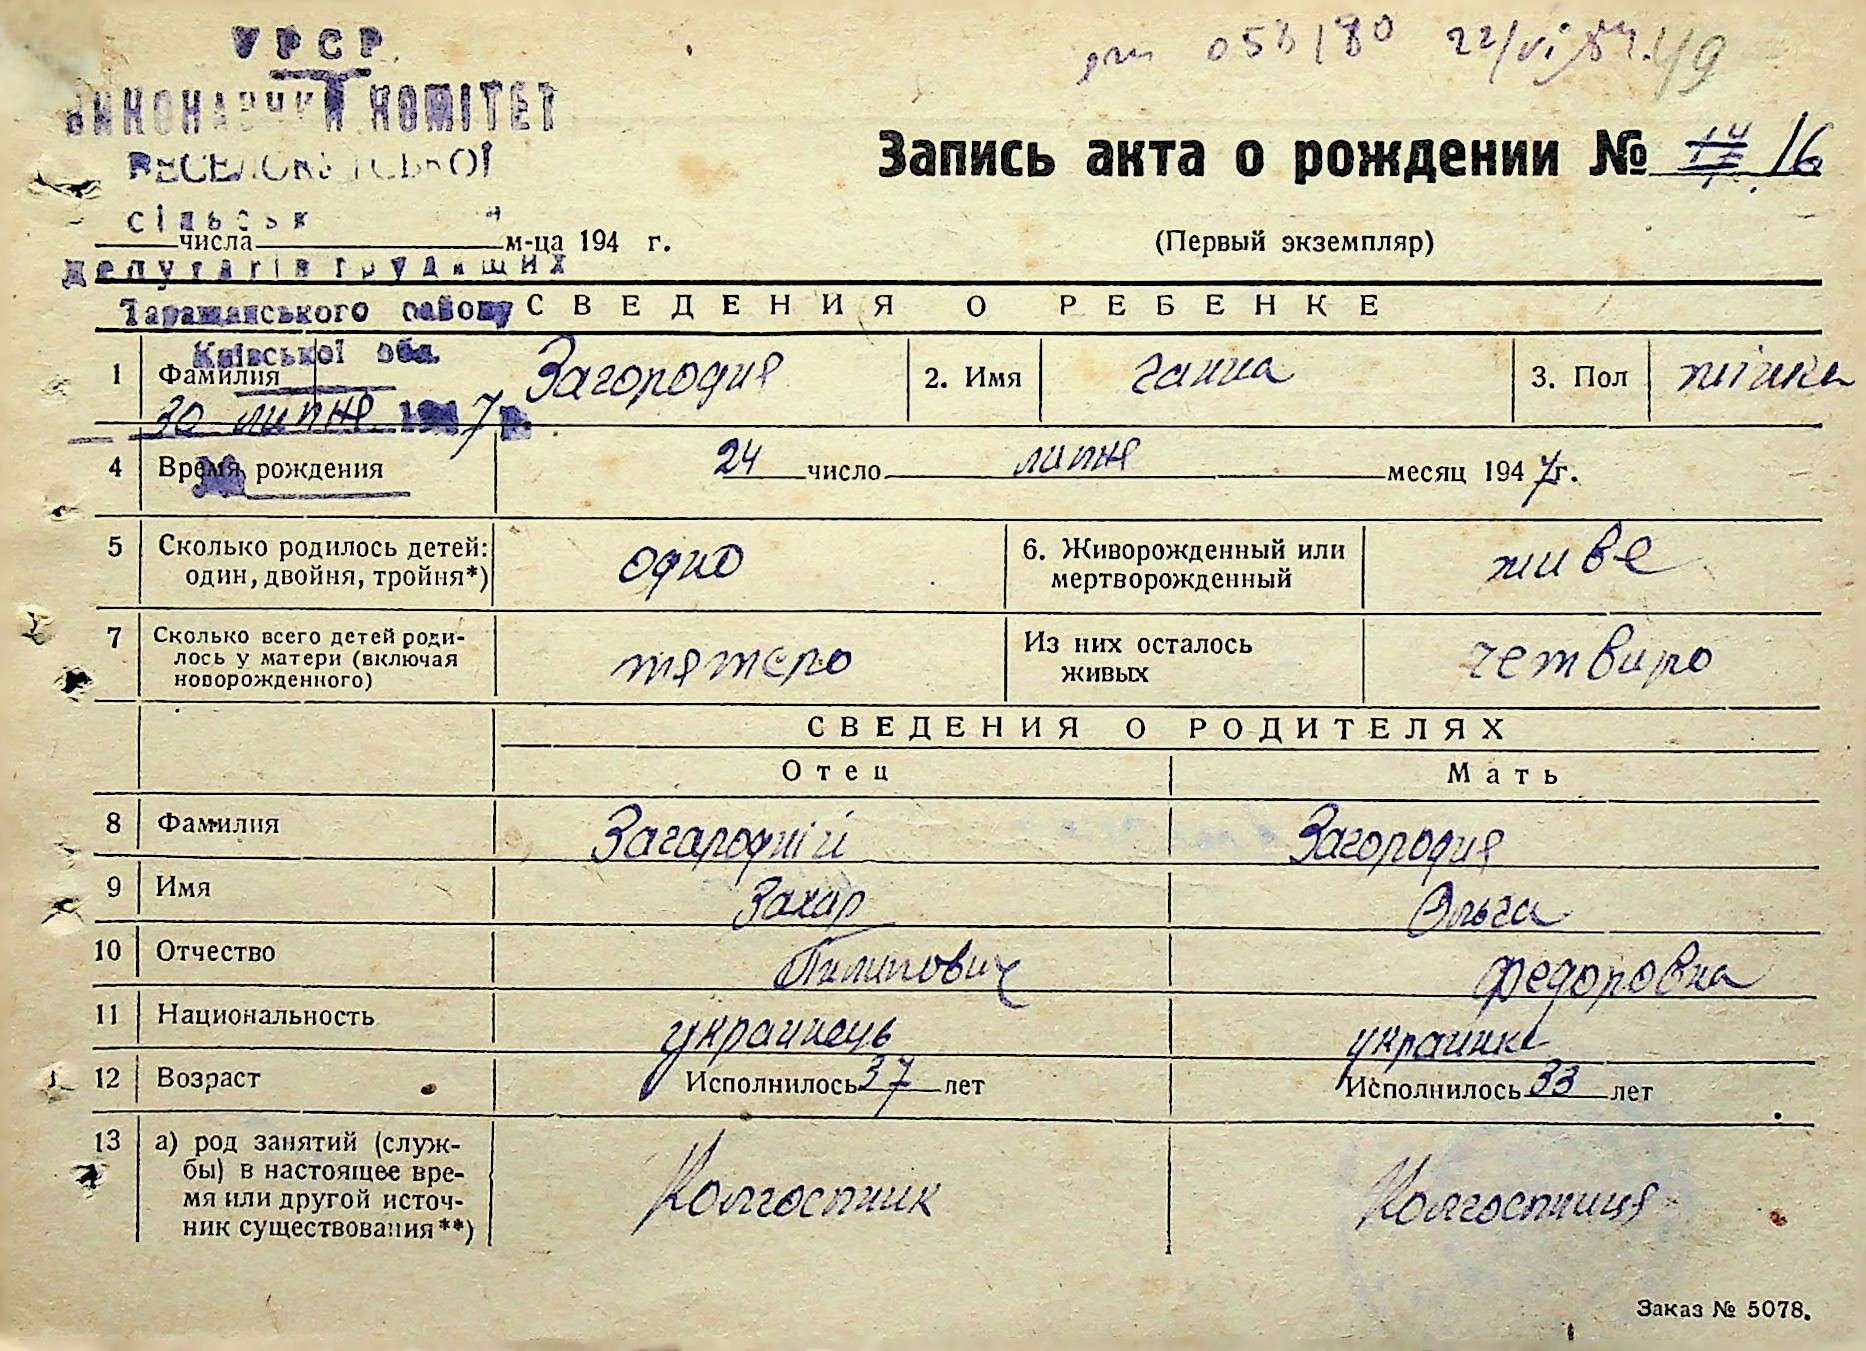 УРСР
ВИКОНАВЧИЙ КОМІТЕТ
сільськ
депутатів трудящих
Таращанського району
Київської обл.
30 липня 1947 р.
058/80 22/VI 49
Запись акта о рождении № 16
числа м-ца 194 г.
(Первый экземпляр)
СВЕДЕНИЯ О РЕБЕНКЕ
1 Фамилия Загородня 2. Имя ганна 3. Пол жінка
4 Время рождения 24 число липня месяц 1947 г.
5 Сколько родилось детей: один, двойня, тройня*) одно 6. Живорожденный или мертворожденный живе
7 Сколько всего детей роди-
лось у матери (включая
новорожденного) пятеро Из них осталось живых четвиро
СВЕДЕНИЯ О РОДИТЕЛЯХ
Отец Мать
8 Фамилия Загародній Загородня
9 Имя Захар Ольга
10 Отчество Пилипович федоровна
11 Национальность украинець украинка
12 Возраст Исполнилось 37 лет Исполнилось 33 лет
13 а) род занятий (служ-
бы) в настоящее вре-
мя или другой источ-
ник существования**) Колгоспник Колгоспниця
Заказ № 5078.